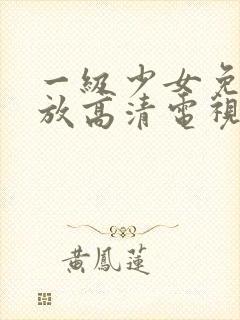 一級少女免
放高清電視
黃鳳蓮